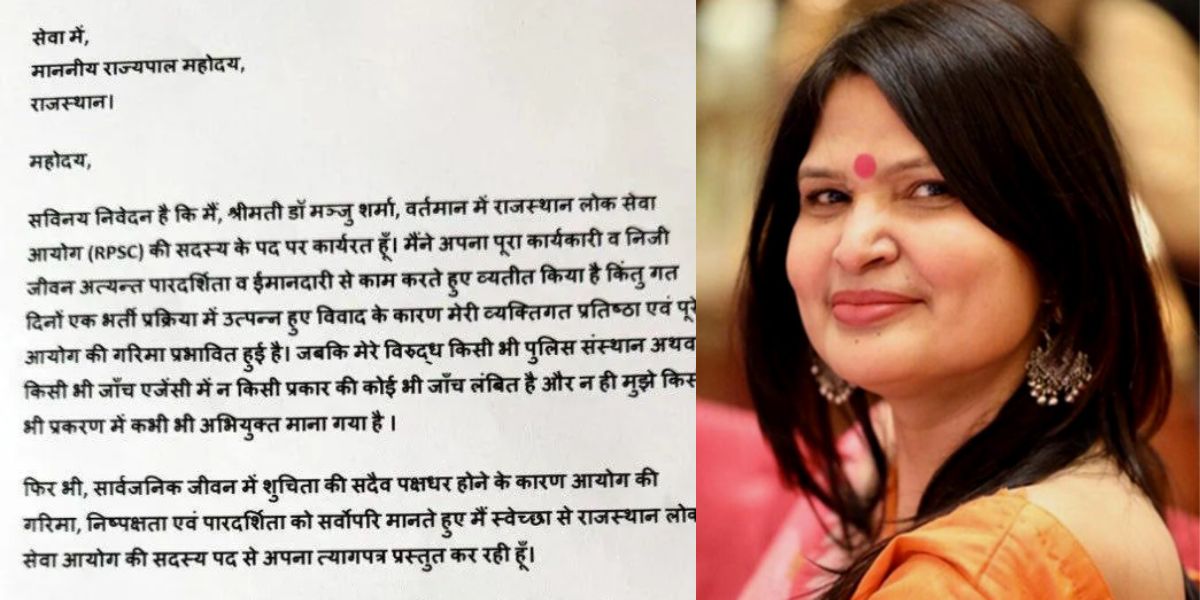 सेवा में,
माननीय राज्यपाल महोदय,
राजस्थान।
महोदय,
सविनय निवेदन है कि मैं, श्रीमती डॉ मञ्जु शर्मा, वर्तमान में राजस्थान लोक सेवा
आयोग (RPSC) की सदस्य के पद पर कार्यरत हूँ। मैंने अपना पूरा कार्यकारी व निजी
जीवन अत्यन्त पारदर्शिता व ईमानदारी से काम करते हुए व्यतीत किया है किंतु गत
दिनों एक भर्ती प्रक्रिया में उत्पन्न हुए विवाद के कारण मेरी व्यक्तिगत प्रतिष्ठा एवं पूरे
आयोग की गरिमा प्रभावित हुई है। जबकि मेरे विरुद्ध किसी भी पुलिस संस्थान अथव
किसी भी जाँच एजेंसी में न किसी प्रकार की कोई भी जाँच लंबित है और न ही मुझे किस
भी प्रकरण में कभी भी अभियुक्त माना गया है ।
फिर भी, सार्वजनिक जीवन में शुचिता की सदैव पक्षधर होने के कारण आयोग की
गरिमा, निष्पक्षता एवं पारदर्शिता को सर्वोपरि मानते हुए मैं स्वेच्छा से राजस्थान लोक
सेवा आयोग की सदस्य पद से अपना त्यागपत्र प्रस्तुत कर रही हूँ।